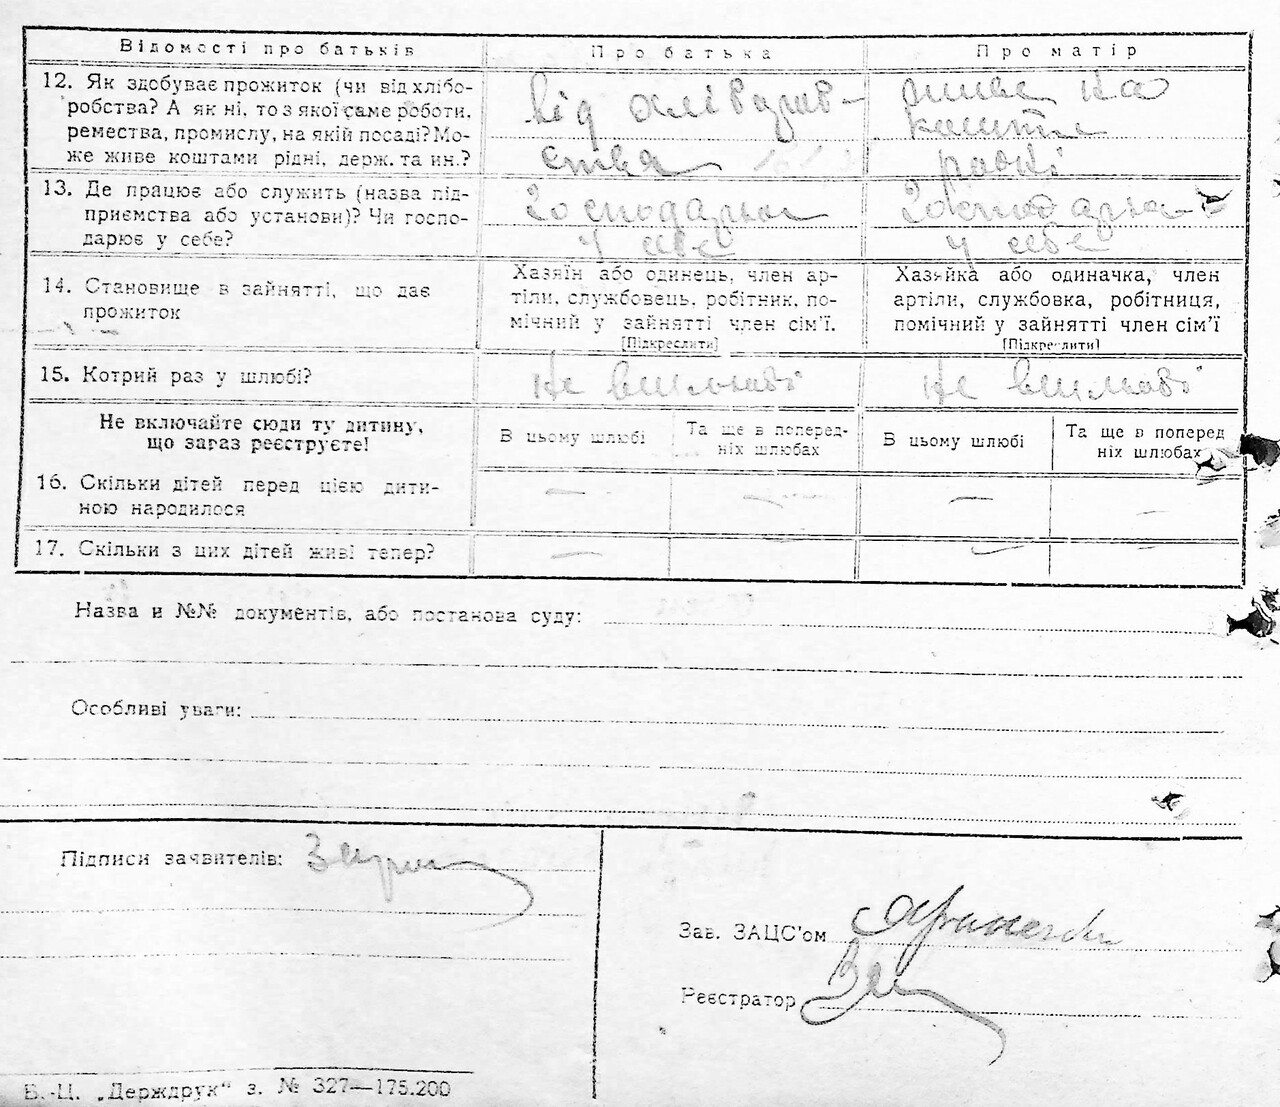 Відомості про батьків
Про батька
Про матір
12. Як здобуває прожиток (чи від хлібо-
робства? А як ні, то з якої саме роботи,
ремества, промислу, на якій посаді? Мо-
же живе коштами рідні, держ. та ин.?
від хлібороб-
ства
живе на
кошти
рідні
13. Де працює або служить (назва під-
приємства або установи)? Чи госпо-
дарює у себе?
Господарює
у себе
Господарює
у себе
14. Становище в зайнятті, що дає
прожиток
Хазяїн або одинець, член ар-
тіли, службовець, робітник, по-
мічний у зайнятті член сім'ї.
[Підкреслити]
Хазяйка або одиначка, член
артіли, службовка, робітниця,
помічний у зайнятті член сім'ї
[Підкреслити]
15. Котрий раз у шлюбі?
не
не
Не включайте сюди ту дитину,
що зараз реєструєте!
В цьому шлюбі
Та ще в поперед-
ніх шлюбах
В цьому шлюбі
Та ще в поперед
ніх шлюбах
16. Скільки дітей перед цією дити-
ною народилося
— — — —
17. Скільки з цих дітей живі тепер?
— — — —
Назва и №№ документів, або постанова суду:
Особливі уваги:
Підписи заявителів:
Зав. ЗАЦС'ом
Реєстратор
В.-Ц. „Держдрук“ з. № 327—175.200